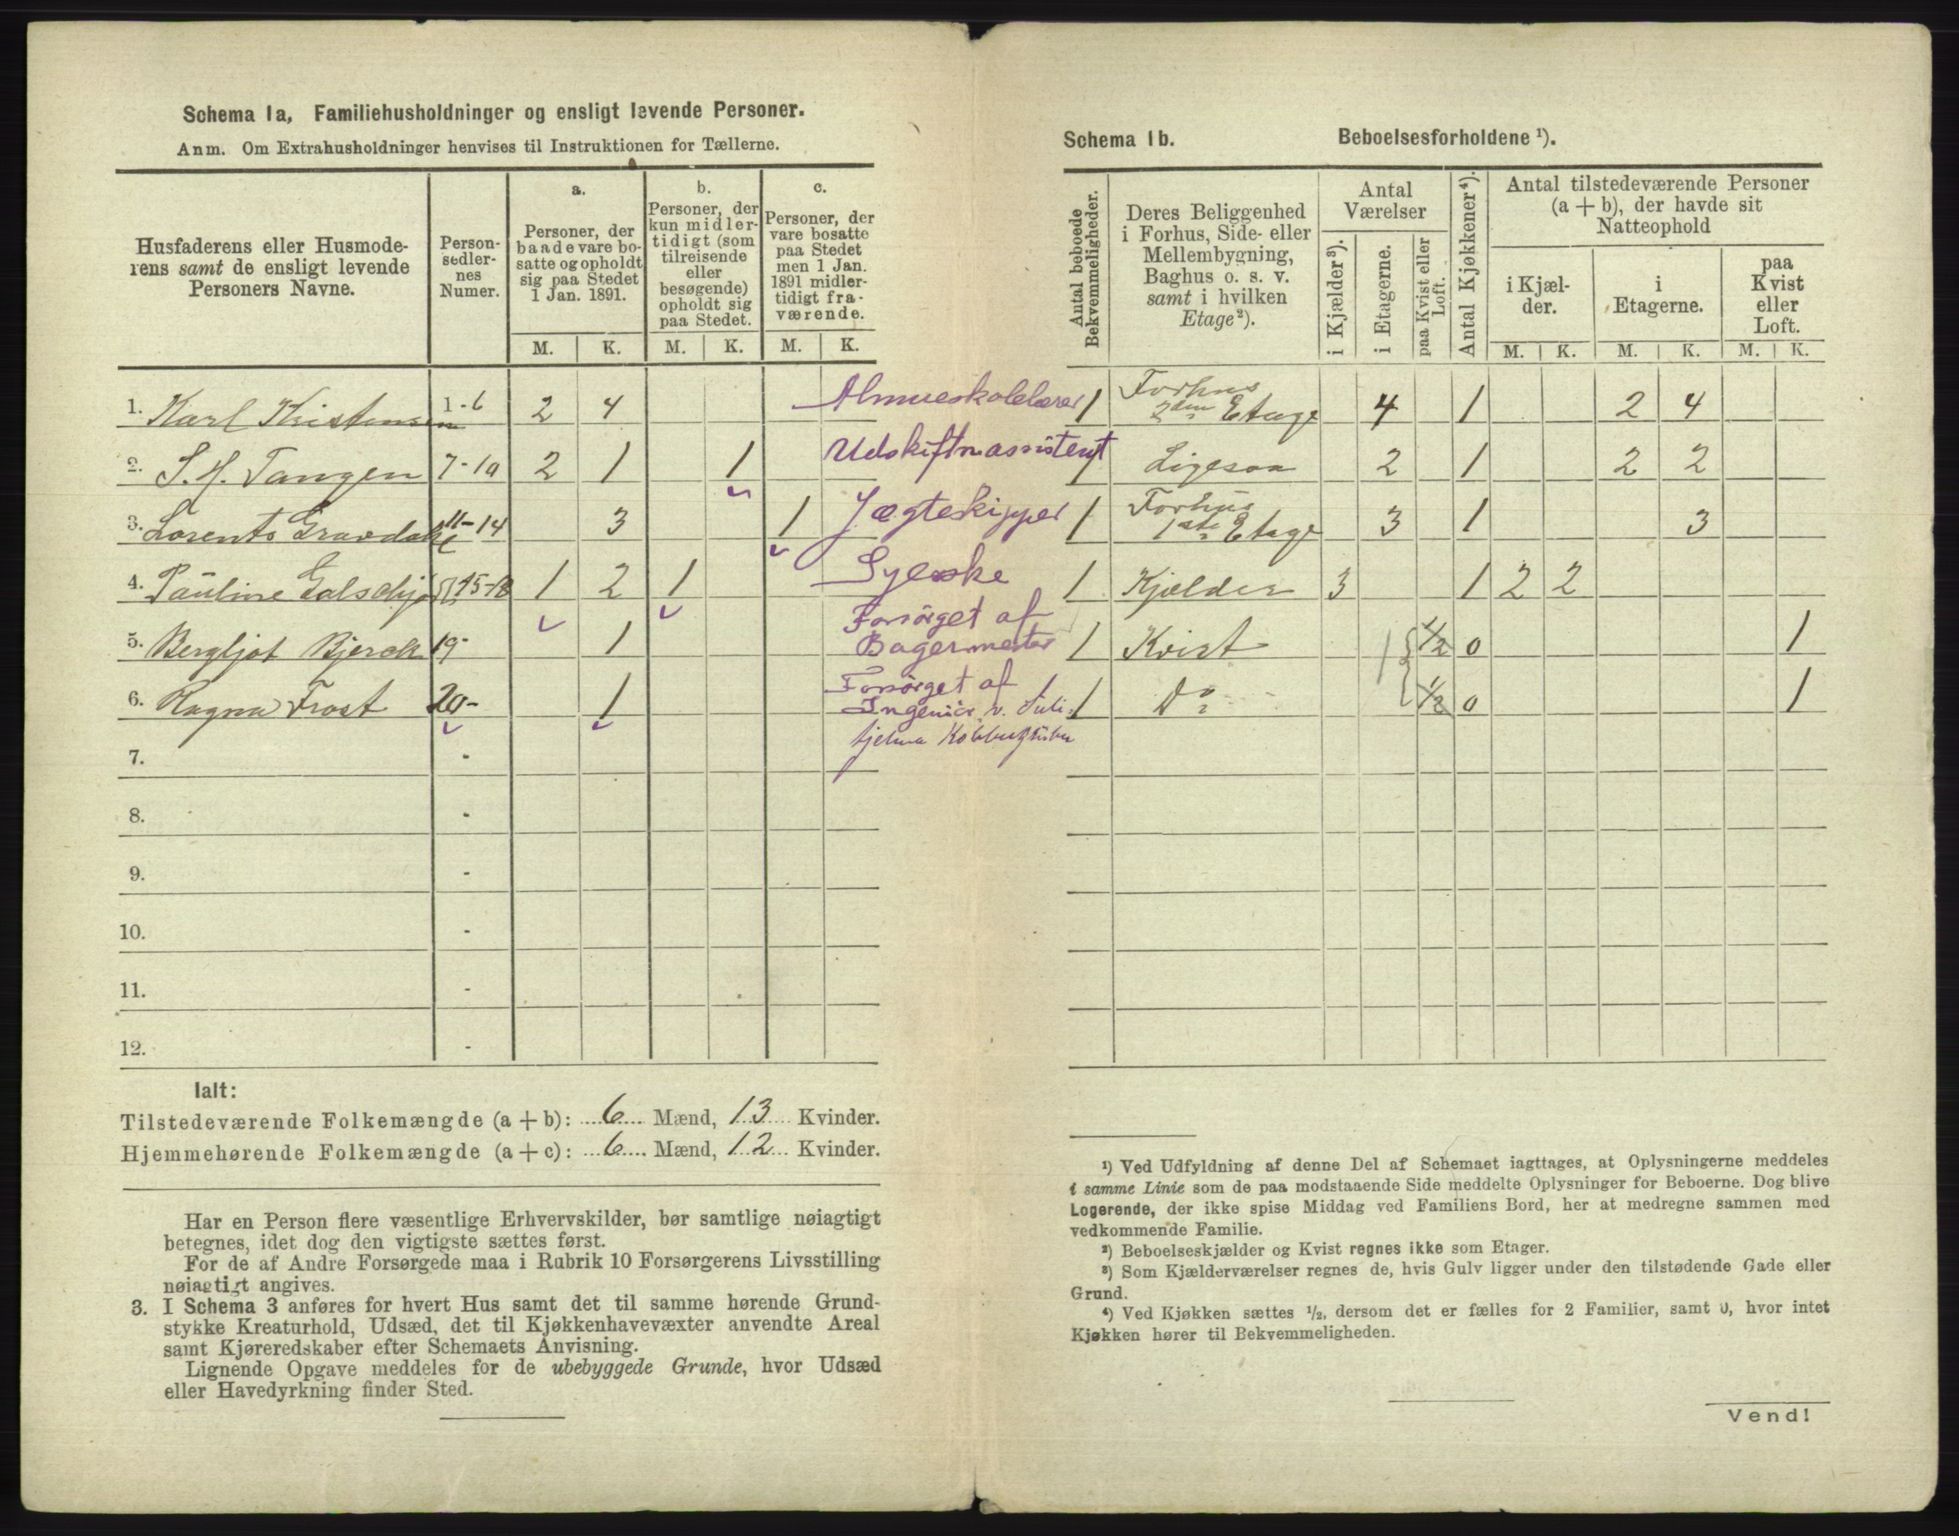 Schema 1a, Familiehusholdninger og ensligt levende Personer.
Anm. Om Extrahusholdninger henvises til Instruktionen for Tællerne.
Husfaderens eller Husmode-
rens samt de ensligt levende
Personers Navne.
Person-
sedler-
nes
Numer.
a.
Personer, der
baade vare bo-
satte og opholdt
sig paa Stedet
1 Jan. 1891.
b.
Personer, der
kun midler-
tidigt (som
tilreisende
eller
besøgende)
opholdt sig
paa Stedet.
c.
Personer, der
vare bosatte
paa Stedet
men 1 Jan.
1891 midler-
tidigt fra-
værende.
M. K. M. K. M. K.
1. Karl Kristensen 1-6 2 4 Almueskolelærer
2. S. H. Tangen 7-10 2 1 1 Udskiftn assistent
3. Lorents Gravdahl 11-14 3 1 Jægteskipper
4. Pauline 15-18 1 2 1 Syerske
5. Bergljot Bjerck 19- 1 Forsörget af
Bagermester
6. Ragna Frost 20- 1 Forsörget af
Ingeniör v. Suli-
tjelma
7. -
8. -
9. -
10. -
11. -
12. -
Ialt:
Tilstedeværende Folkemængde (a + b): 6 Mænd, 13 Kvinder.
Hjemmehørende Folkemængde (a + c): 6 Mænd, 12 Kvinder.
Har en Person flere væsentlige Erhvervskilder, bør samtlige nøiagtigt
betegnes, idet dog den vigtigste sættes først.
For de af Andre Forsørgede maa i Rubrik 10 Forsørgerens Livsstilling
nøiagtigt angives.
3. I Schema 3 anføres for hvert Hus samt det til samme hørende Grund-
stykke Kreaturhold, Udsæd, det til Kjøkkenhavevæxter anvendte Areal
samt Kjøreredskaber efter Schemaets Anvisning.
Lignende Opgave meddeles for de ubebyggede Grunde, hvor Udsæd
eller Havedyrkning finder Sted.
Schema 1b. Beboelsesforholdene ¹).
Antal beboede
Bekvemmeligheder.
Deres Beliggenhed
i Forhus, Side- eller
Mellembygning,
Baghus o. s. v.
samt i hvilken
Etage²).
Antal
Værelser
i Kjælder³).
i Etagerne.
paa Kvist eller
Loft.
Antal Kjøkkener⁴).
Antal tilstedeværende Personer
(a + b), der havde sit
Natteophold
i Kjæl-
der.
i
Etagerne.
paa
Kvist
eller
Loft.
M. K. M. K. M. K.
1 Forhus
2den Etage 4 1 2 4
1 Ligesaa 2 1 2 2
1 Forhus
1ste Etage 3 1 3
1 Kjælder 3 1 2 2
1 Kvist 1 1/2 0 1
1 Do 1/2 0 1
¹) Ved Udfyldning af denne Del af Schemaet iagttages, at Oplysningerne meddeles
i samme Linie som de paa modstaaende Side meddelte Oplysninger for Beboerne. Dog blive
Logerende, der ikke spise Middag ved Familiens Bord, her at medregne sammen med
vedkommende Familie.
²) Beboelseskjælder og Kvist regnes ikke som Etager.
³) Som Kjælderværelser regnes de, hvis Gulv ligger under den tilstødende Gade eller
Grund.
⁴) Ved Kjøkken sættes ¹/₂, dersom det er fælles for 2 Familier, samt 0, hvor intet
Kjøkken hører til Bekvemmeligheden.
Vend!